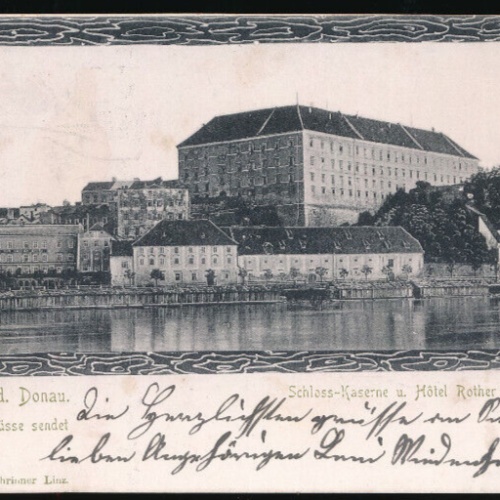 d. Donau.
Schloss-Kaserne u. Hôtel Rother
üsse sendet
Die Herzlichsten grüsse an
lieben Angehörigen Leni
Linz.